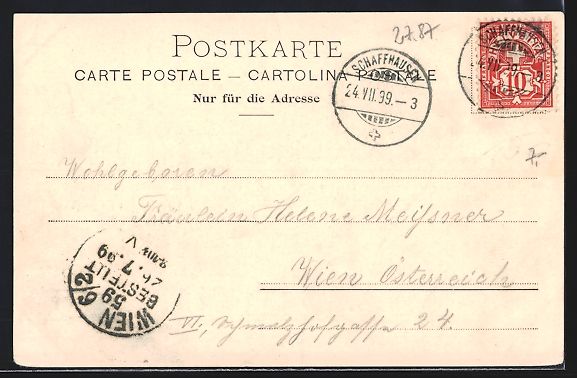 27.87
POSTKARTE
CARTE POSTALE — CARTOLINA POSTALE
Nur für die Adresse
SCHAFFHAUSEN
24.VII.99.—3
SCHAFFHAUSEN
10
7,
Wohlgeboren
Fräulein Helene Meißner
Wien Österreich
VI, Schmalzhofgasse 24.
WIEN 6/2
59
BESTELLT
26.7.99